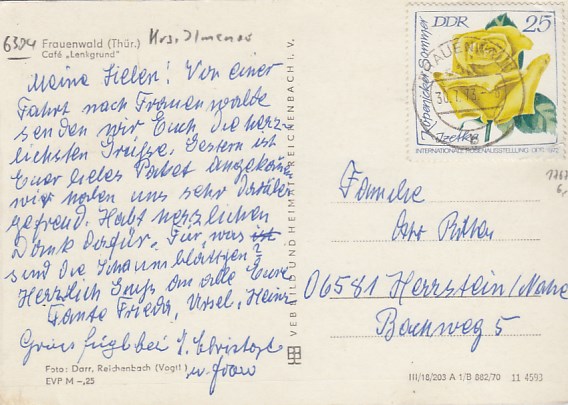 6304 Frauenwald (Thür.) Krs. Ilmenau
Café „Lenkgrund"
Meine Lieben! Von einer
Fahrt nach Frauenwalde
senden wir Euch die herz-
lichsten Grüße. Gestern ist
Euer liebes Paket angekommen
wir haben uns sehr darüber
gefreut. Habt herzlichen
Dank dafür. Für was ist
sind die Schaumblättgen?
Herzlich Euch alle Eure
Tante Frieda, Ursel, Heinz
J. Christoph
u. Frau
Foto: Darr, Reichenbach (Vogtl.)
EVP M –,25
VEB BILD UND HEIMAT REICHENBACH I. V.
DDR 25
Köpenicker Sommer
Izetka
INTERNATIONALE ROSENAUSSTELLUNG 1972
FRAUENWALD
Familie
Otto
06581 Herrstein/Nahe
Bachweg 5
III/18/203 A 1/B 882/70 11 4593